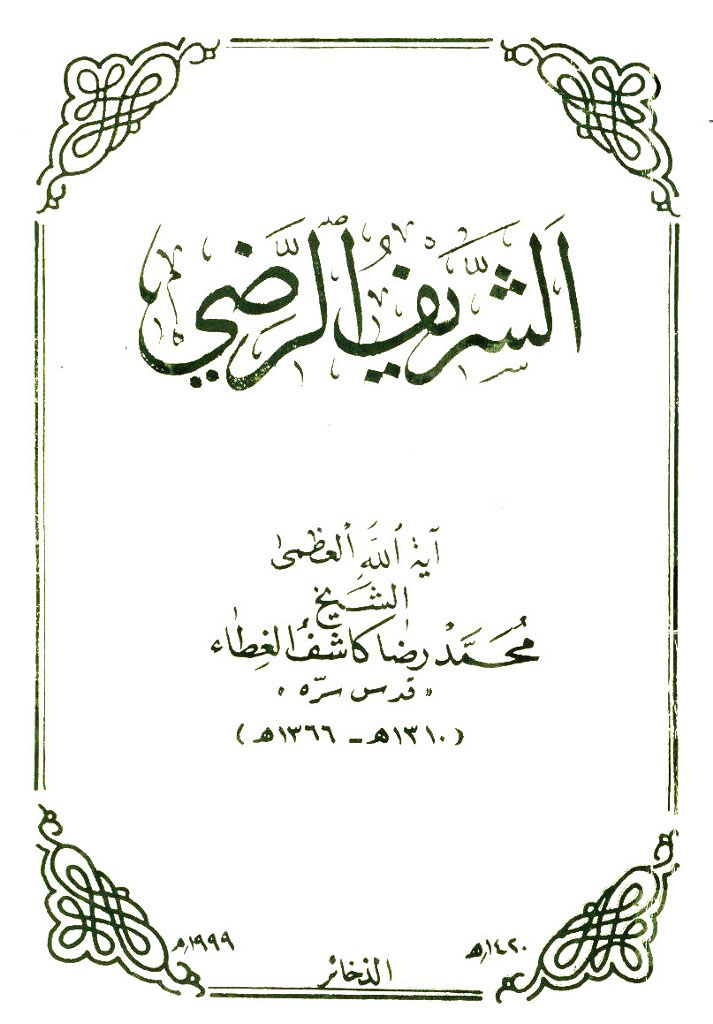 الشَّرِيفُ الرَّضِي
آية اللَّه العظمى
الشَّيخ
مُحَمَّد رضَا كَاشفُ الغِطاء
« قدس سرّه »
(١٣١٠هـ - ١٣٦٦هـ)
١٤٢٠هـ
١٩٩٩م
الذخائر